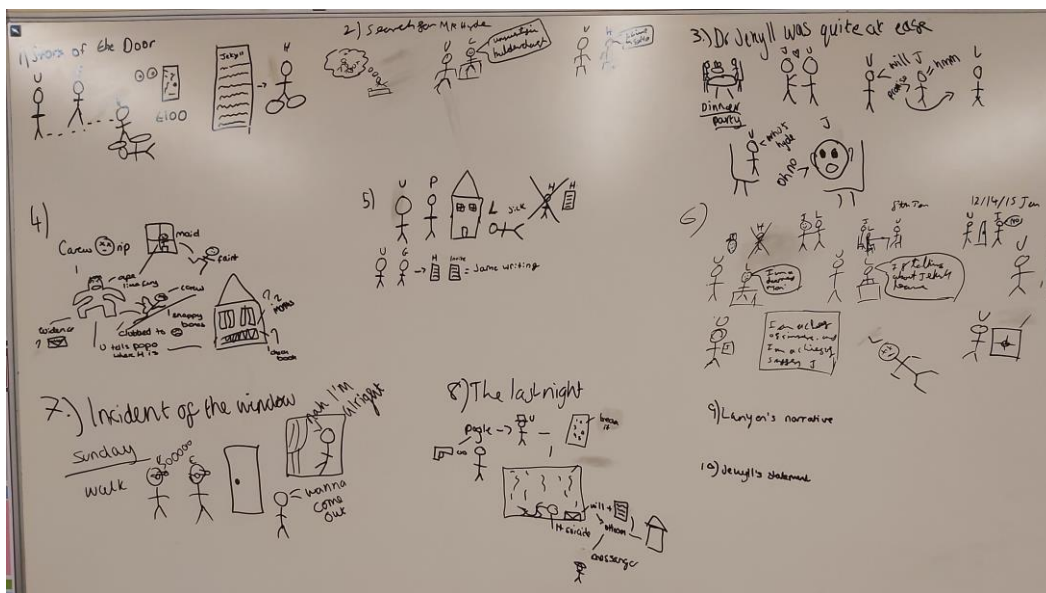 1) Story of the Door
U
G
£100
Jekyll
H
2) Search for Mr. Hyde
U
L
unscientific
balderdash
U
H
3.) Dr Jekyll was quite at ease
Dinner
party
J
U
U
will
promise
J
hmm
L
who's
hyde
Oh no
J
4)
Carew
rip
maid
faint
ape
like fury
Carew
snappy
bones
clubbed to
evidence
?
U tells popo
where H is
? ?
? cheque
book
5)
U
P
L
sick
H
H
U
G
H
= same writing
6)
J
L
8th Jan
J
U
12/14/15 Jan
U
J
NO
U
L
I'm a
doomed
man
U
L
Stop talking
about Jekyll
U
U
J
I'm a chief
of sinners and
I'm a chief of
suffers J
U
U
7.) Incident of the window
Sunday
walk
nah I'm
alright
wanna
come
out
8) The last night
poole
U
break
it
H suicide
will +
U
9) Lanyon's narrative
10) Jekyll's statement